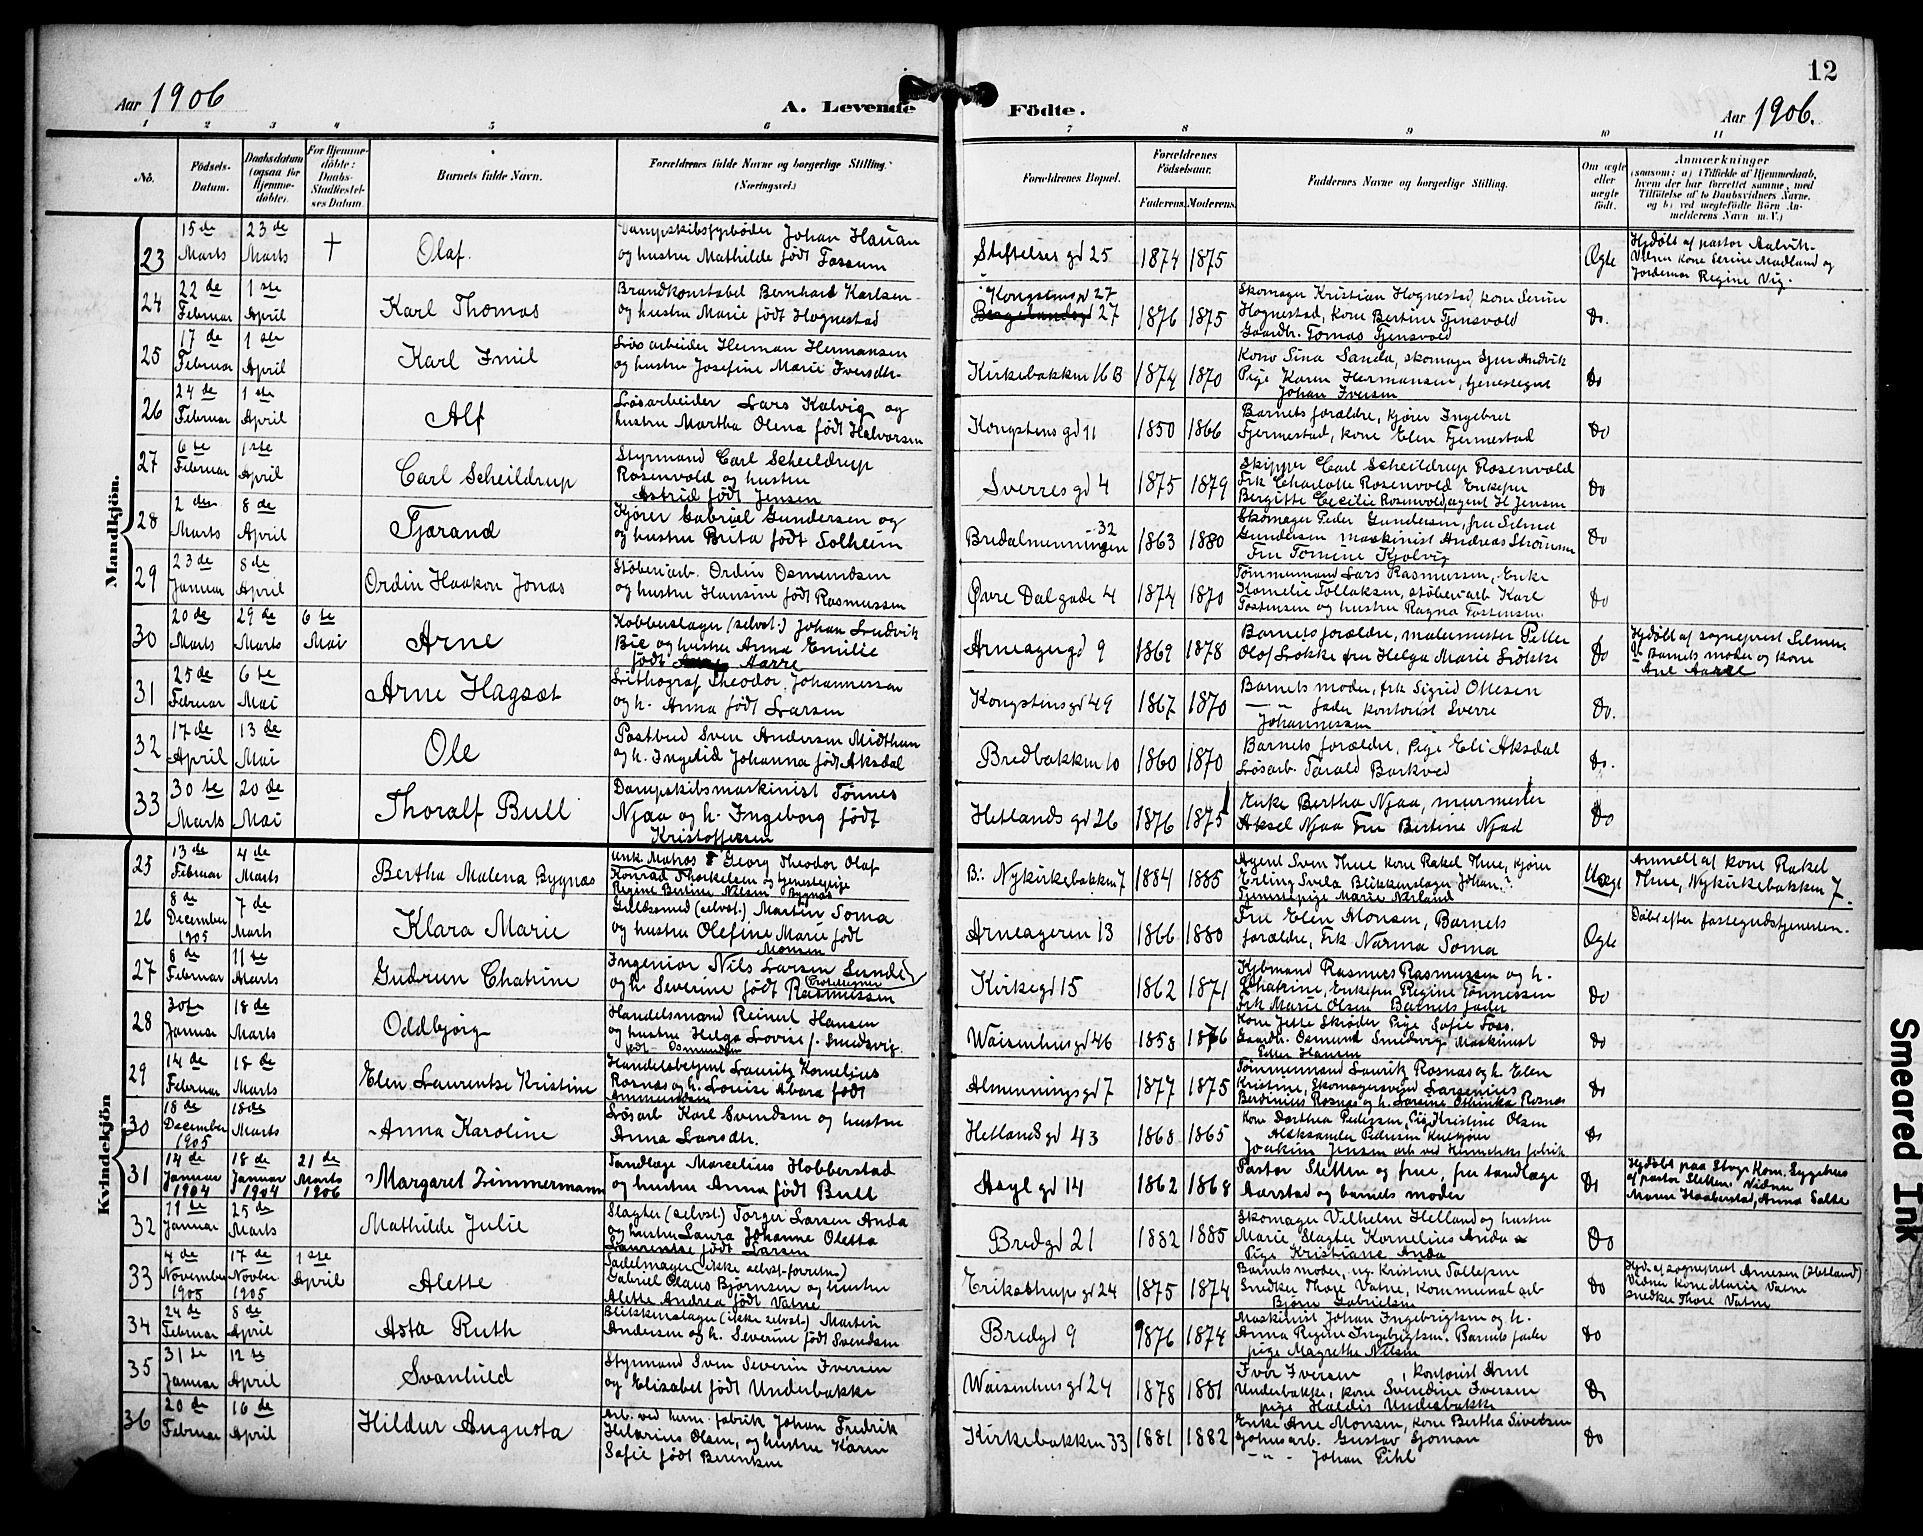 12
Aar 1906
A. Levende Födte.
Aar 1906.
1 2 3 4 5 6 7 8 9 10 11
No.
Födsels-Datum.
Daabsdatum (ogsaa for Hjemmedöbte).
For Hjemmedöbte: Daabs-Stadfæstelses Datum
Barnets fulde Navn.
Forældrenes fulde Navne og borgerlige Stilling. (Næringsvei.)
Forældrenes Bopæl.
Forældrenes Födselsaar.
Faderens. Moderens.
Faddernes Navne og borgerlige Stilling.
Om ægte eller uægte födt.
Anmærkninger
(saasom: a) i Tilfælde af Hjemmedaab, hvem der har forrettet samme, med Tilföielse af to Daabsvidners Navne, og b) ved uægtefödte Börn Anmelderens Navn m. V.)
Mandkjön.
23 15de Marts 23de Marts † Olaf. Dampskibsfyrböder Johan Hauan og hustru Mathilde födt Fossum Stiftelses gd 25 1874 1875 Ægte Hjdöbt af pastor Aalvik. Vidner kone Serine Madland og Jordemor Regine Vig.
24 22de Februar 1ste April Karl Thomas Brandkonstabel Bernhard Karlsen og hustru Marie födt Hognestad Kongstensgd 27 1876 1875 Skomager Kristian Hognestad, kone Serine Hognestad, kone Bertine Tjensvold Gaardbr. Tomas Tjensvold Do.
25 17de Februar 1ste April Karl Emil Lösarbeider Herman Hermansen og hustru Josefine Marie Iversdtr. Kirkebakken 16B 1874 1870 Kone Sina Sanda, skomager Pige Karen Hermansen, tjenestegut Johan Iversen Do
26 24de Februar 1ste April Alf Lösarbeider Lars Kalvig og hustru Martha Olena födt Halvorsen Kongstens gd 11 1850 1866 Barnets forældre, kjörer Ingebret Tjermestad, kone Elen Tjermestad Do
27 6te Februar 1ste April Carl Scheildrup Styrmand Carl Scheildrup Rosenvold og hustru Astrid födt Jensen Sverres gd 4 1875 1879 Skipper Carl Scheildrup Rosenvold Frk Charlotte Rosenvold Enkefru Bergitte Cecilie Rosenvold, agent H Jensen Do
28 2den Marts 8de April Tjærand Kjörer Gabriel Gundersen og og hustru Brita födt Solheim Bredalmenningen 32 1863 1880 Skomager Peder Gundersen, fru Selma Gundersen maskinist Andreas Fru Tomine Kjølvig Do
29 23de Januar 8de April Ordin Haakon Jonas Stöberiarb. Ordin Osmundsen og hustru Hansine födt Rasmussen Övre Dalgade 4 1874 1870 Tömmermand Lars Rasmussen, Enke Kornelie Tollaksen, stöberiarb Karl Tostensen og hustru Ragna Tostensen Do
30 20de Marts 29de Marts 6te Mai Arne Kobberslager (selvst.) Johan Ludvik Bie og hustru Anna Emilie födt Aarre Arneagergd 9 1869 1878 Barnets forældre, malermester Petter Olaf Lökke fru Helga Marie Lökke Do Hjdöbt af sogneprest Selmer V. Barnets moder og kone Ane Aarre
31 25de Februar 6te Mai Arne Hagsæt Lithograf Theodor Johannessen og h. Anna födt Larsen Kongstensgd 49 1867 1870 Barnets moder, frk Sigrid Ottesen —"— fader kontorist Sverre Johannessen Do.
32 17de April 13de Mai Ole Postbud Sven Andersen Midthun og h. Ingelid Johanna födt Aksdal Bredbakken 10 1860 1870 Barnets forældre, Pige Eli Aksdal Lösarb. Tarald Barkved Do.
33 30te Marts 20de Mai Thoralf Bull Dampskibsmaskinist Tönnes Njaa og h. Ingeborg födt Kristoffersen Hetlands gd 26 1876 1875 Enke Bertha Njaa, murmester Aksel Njaa Fru Bertine Njaa Do
Kvindekjön
25 13de Februar 4de Marts Bertha Malena Bygnæs Unk Matros Georg Theodor Olaf Konrad Thorkelsen og tjenestepige Regine Bertine Nilsen Bygnæs B: Nykirkebakken 7 1884 1885 Agent Sven Thue kone Rakel Thue, kjörer Erling Svela Blikkenslager Johan Tjenestepige Marie Nerland Uægte Anmeldt af kone Rakel Thue, Nykirkebakken 7.
26 8de December 1905 7de Marts Klara Marie Guldsmed (selvst.) Martin Soma og hustru Olefine Marie födt Monsen Arneageren 13 1866 1880 Fru Elen Monsen, Barnets forældre, Frk Narma Soma Ægte Döbt efter fastegudstjenesten.
27 8de Februar 11te Marts Gudrun Chatrine Ingeniör Nils Larsen Lunde og h. Severine födt Rasmussen Kirkegd 15 1862 1871 Kjöbmand Rasmus Rasmussen og h. Chatrine, Enkefru Regine Tönnessen Frk Marie Olsen Barnets fader Do
28 30te Januar 18de Marts Oddbjørg Handelsmand Reinert Hansen og hustru Helga Lovise f. Smedsvig födt Osmundsen Waisenhusgd 46 1858 1876 Kone Jette Skröder Pige Sofie Foss. Gaardbr. Osmund Smedsvig Maskinist Peder Hansen Do
29 14de Februar 18de Marts Elen Laurentse Kristine Handelsbetjent Lauritz Kornelius Rosnæs og h. Louise Abara födt Ammundsen Almenningsgd 7 1877 1875 Tömmermand Lauritz Rosnæs og h. Elen Kristine, Skomagersvend Larsenius Berdinius Rosnæs og h. Larsine Othinka Rosnæs Do
30 18de December 1905 18de Marts Anna Karoline Lösarb Karl Svendsen og hustru Anna Larsdtr. Hetlandsgd 43 1868 1865 Kone Dorthea Pedersen, Pige Kristine Olsen Aleksander Pedersen Joakim Jensen arb ved Hermetikfabrik Do
31 14de Januar 1904 18de Januar 1904 21de Marts 1906 Margaret Zimmermann Tandlæge Marcelius Hobberstad og hustru Anna födt Bull Asylgd 14 1862 1868 Pastor Sletten og frue, fru tandlæge Aarstad og barnets moder Do Hjdöbt paa Stvgr Kom. Sygehus af pastor Sletten. Vidner Maren Haaberstad, Anna Salte
32 11te Januar 25de Marts Mathilde Julie Slagter (selvst) Torger Larsen Anda og hustru Laura Johanne Oletta Laurentse födt Larsen Bredgd 21 1882 1885 Skomager Vilhelm Helland og hustru Marie Slagter Kornelius Anda Pige Kristiane Anda Do
33 4de November 1905 17de Novber 1905 1ste April Alette Sadelmager (ikke selvst-forretn) Gabriel Olaus Björnsen og hustru Alette Andrea födt Vatne Erikstrupgd 24 1875 1874 Barnets moder, ug. Kristine Tollefsen Snedker Thore Vatne, Kommunal arb Björn Gabrielsen Do Hjd. af sogneprest Arnesen (Hetland) Vidner kone Marie Vatne snedker Thore Vatne
34 24de Februar 8de April Asta Ruth Blikkenslager (ikke selvst) Martin Andersen og h. Severine födt Svendsen Bredgd 9 1876 1874 Maskinist Johan Ingebrigtsen og h. Anna Regine Ingebrigtsen. Barnets fader pige Magrethe Nilsen Do
35 31te Januar 12te April Svanhild Styrmand Sven Severin Iversen og Elisabet födt Underbakke Waisenhusgd 24 1878 1881 Iver Iversen, kontorist Arnt Underbakke, kone Svendine Iversen pige Haldis Underbakke Do
36 20de Februar 16de April Hildur Augusta Arb. ved herm. fabrik Johan Fredrik Hilarius Olsen, og hustru Karen Sofie födt Berentsen Kirkebakken 33 1881 1882 Enke Ane Monsen, kone Bertha Sivertsen Gustav Sjöman —"— Johan Pihl Do
Smeared Ink